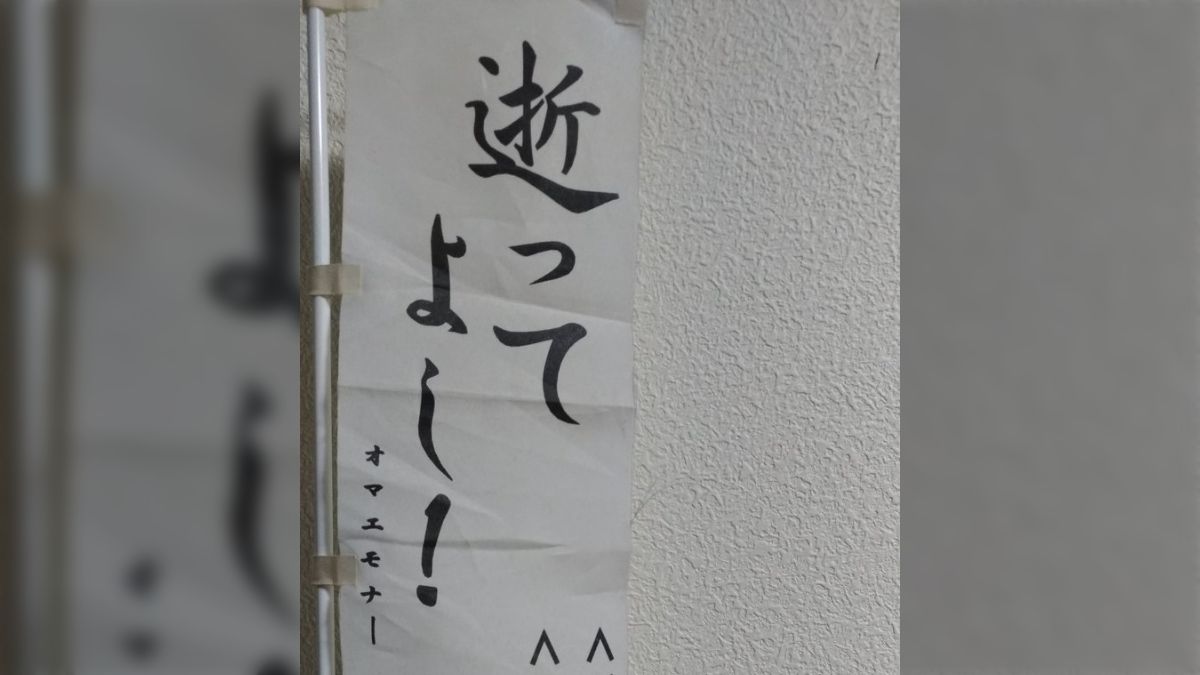 逝って
よし!
オマエモナー
∧ ∧